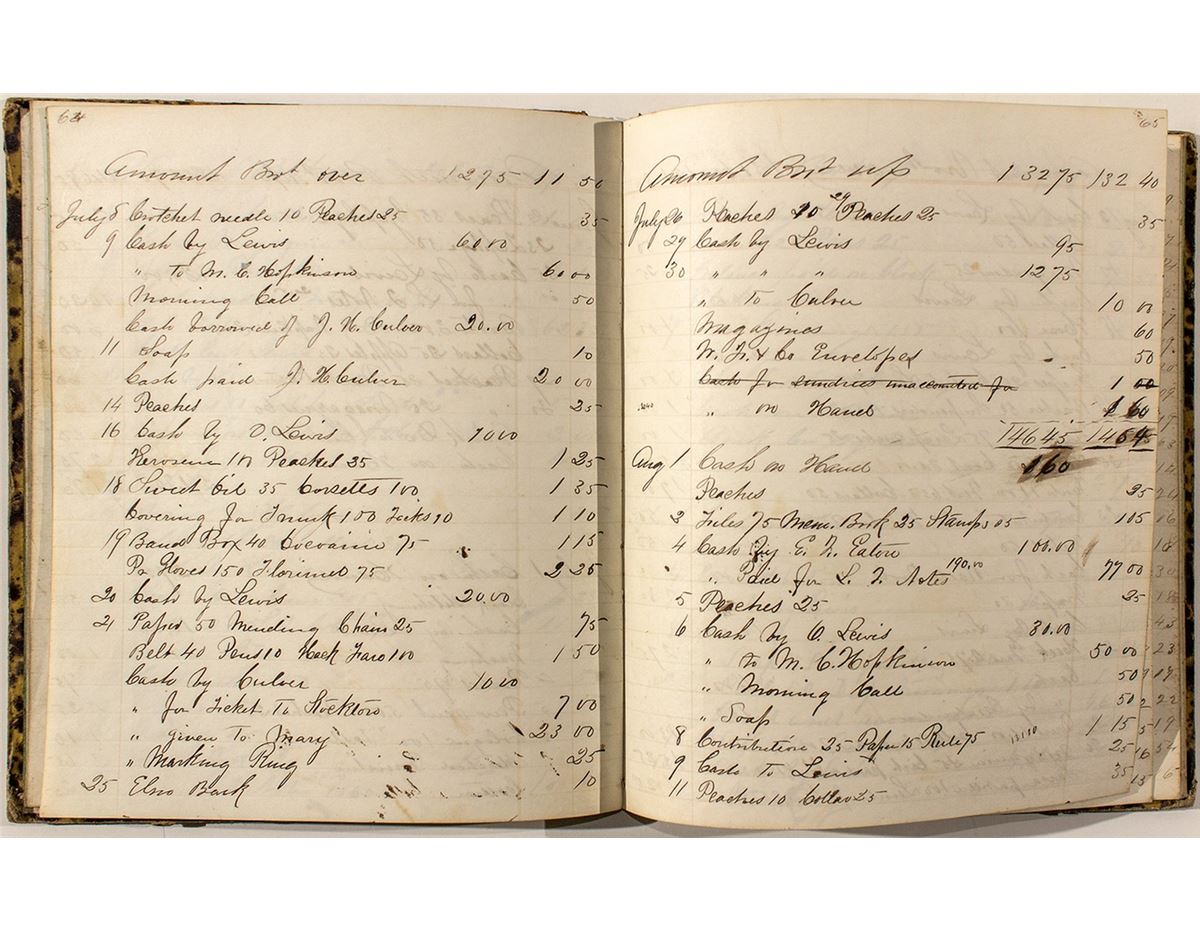 64
Amount Brot over 12 75 11 50
July 8 Crotchet needle 10 Peaches 25 35
9 Cash by Lewis 60.00
" to M. C. Hopkinson 60 00
Morning Call 50
Cash borrowed of J. H. Culver 20.00
11 Soap 10
Cash paid J. H. Culver 20 00
14 Peaches 25
16 Cash by O. Lewis 10 00
Kerosene 100 Peaches 25 1 25
18 Sweet Oil 35 Corsetts 100 1 35
Covering for Trunk 100 10 1 10
19 Band Box 40 75 1 15
Pr Gloves 150 75 2 25
20 Cash by Lewis 20.00
21 Paper 50 Mending Chain 25 75
Belt 40 Pens 10 100 1 50
Cash by Culver 10 00
" for Ticket to Stockton 7 00
" given to Mary 23 00
" Marking Ring 25
25 Elm Bark 10
65
Amount Brot up 132 75 132 40
July 26 Peaches 10 29 Peaches 25 35
29 Cash by Lewis 95
30 " " " 12 75
" to Culver 10 00
Magazines 60
W. F. & Co Envelopes 50
Cash for sundries unaccounted for 1 00
" on Hand 1 60
146 45 146 45
Aug 1 Cash on Hand 160
Peaches 25
2 Files 75 Mem. Book 25 Stamps 05 1 05
4 Cash by E. F. Eaton 100.00
" Paid for L. T. Notes 190.00 77 00
5 Peaches 25 25
6 Cash by O. Lewis 30.00
" to M. C. Hopkinson 50 00
" Morning Call 50
" Soap 50
8 Contribution 25 Paper 15 75 1 15
9 Cash to Lewis 25
11 Peaches 10 Collar 25 35